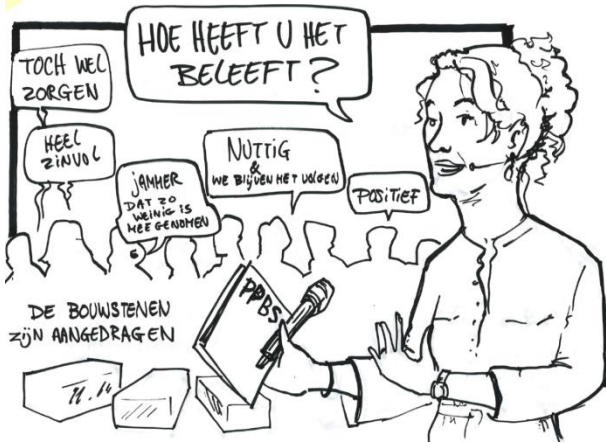 HOE HEEFT U HET
BELEEFT?
TOCH WEL
ZORGEN
HEEL
ZINVOL
JAMMER
DAT ZO
WEINIG IS
MEEGENOMEN
NUTTIG
&
WE BLIJVEN HET VOLGEN
POSITIEF
PPBS
DE BOUWSTENEN
ZIJN AANGEDRAGEN